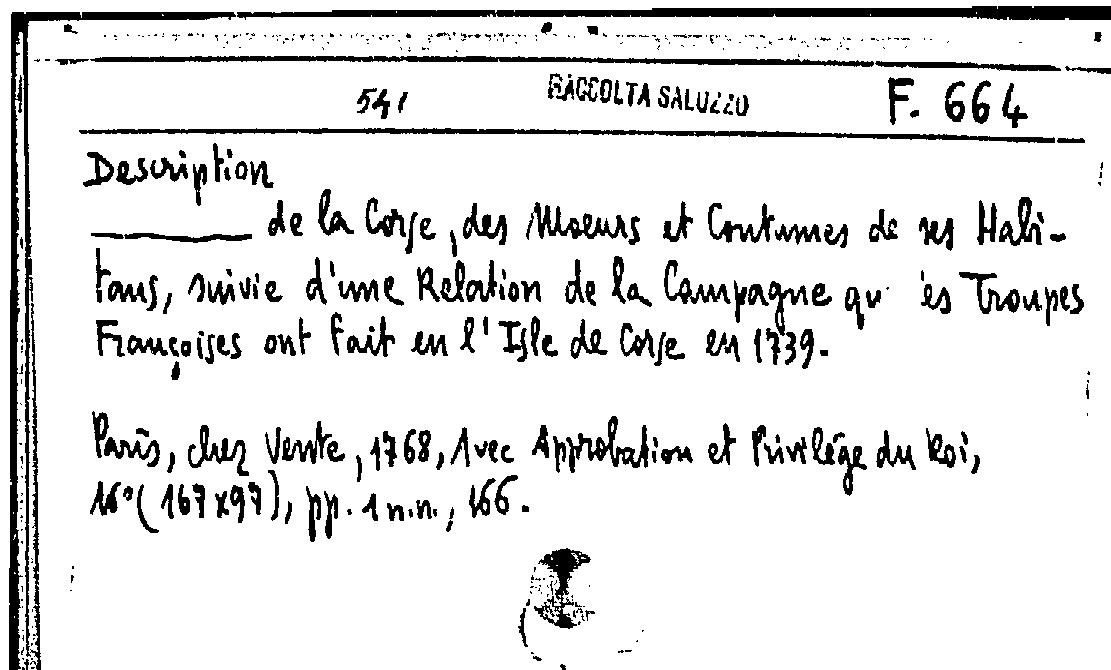 541 RACCOLTA SALUZZO F. 664
Description
de la Corse, des Moeurs et Coutumes de ses Habi-
tans, suivie d'une Relation de la Campagne qu es Troupes
Françoises ont fait en l'Isle de Corse en 1739.
Paris, chez Vente, 1768, Avec Approbation et Privilège du Roi,
16° (167x97), pp. 1 n.n., 166.